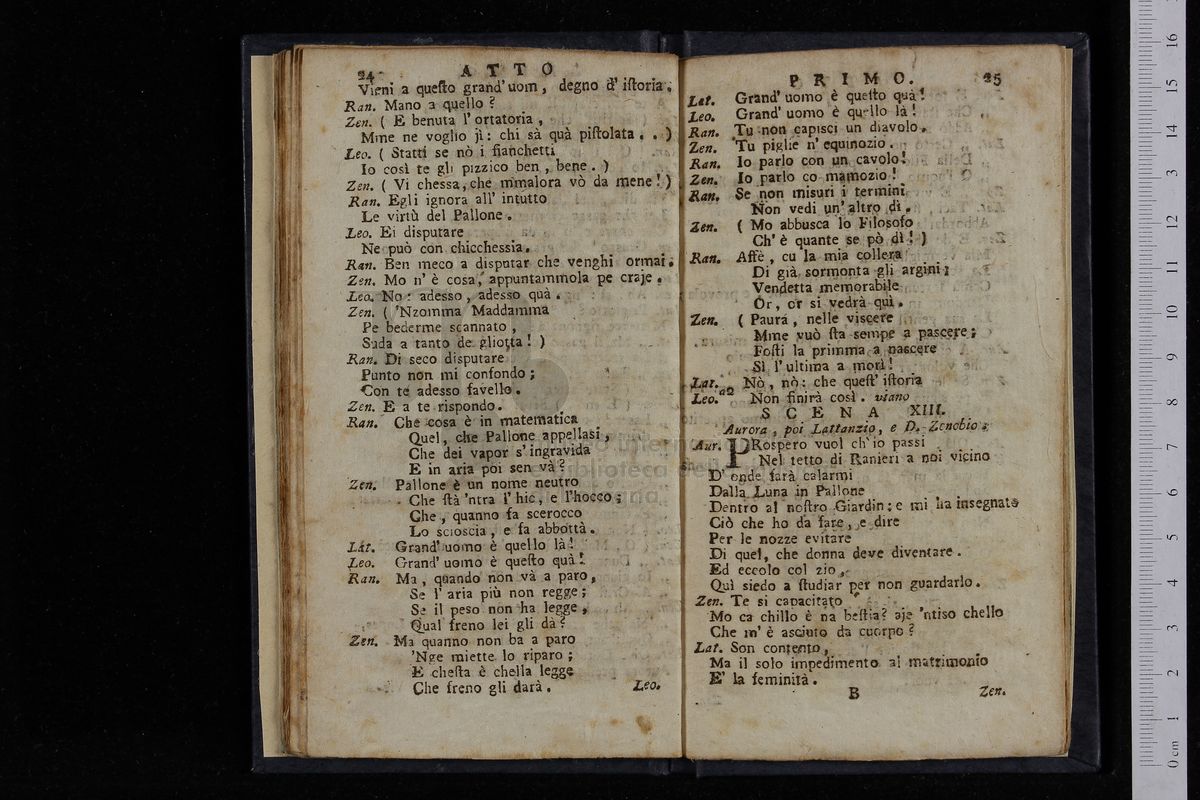 24 ATTO
Vieni a questo grand' uom, degno d' istoria.
Ran. Mano a quello ?
Zen. ( E benuta l' ortatoria ,
Mme ne voglio jì : chi sà quà pistolata . . )
Leo. ( Statti se nò i fianchetti
Io così te gli pizzico ben , bene . )
Zen. ( Vi chessa, che mmalora vò da mene ! )
Ran. Egli ignora all' intutto
Le virtù del Pallone .
Leo. Ei disputare
Ne può con chicchessia.
Ran. Ben meco a disputar che venghi ormai.
Zen. Mo n' è cosa, appuntammola pe craje .
Leo. No : adesso , adesso quà .
Zen. ( 'Nzomma Maddamma
Pe bederme scannato ,
Suda a tanto de gliotta ! )
Ran. Di seco disputare
Punto non mi confondo ;
Con te adesso favello .
Zen. E a te rispondo .
Ran. Che cosa è in matematica
Quel, che Pallone appellasi ,
Che dei vapor s' ingravida
E in aria poi sen và ?
Zen. Pallone è un nome neutro
Che stà 'ntra l' hic, e l'hocco ;
Che , quanno fa scerocco
Lo scioscia , e fa abbottà .
Lat. Grand' uomo è quello là !
Leo. Grand' uomo è questo quà !
Ran. Ma , quando non và a paro ,
Se l' aria più non regge ;
Se il peso non ha legge ,
Qual freno lei gli dà ?
Zen. Ma quanno non ba a paro
'Nge miette lo riparo ;
E chesta è chella legge
Che freno gli darà .
Leo.
PRIMO. 25
Lat. Grand' uomo è questo quà !
Leo. Grand' uomo è quello là !
Ran. Tu non capisci un diavolo .
Zen. Tu piglie n' equinozio .
Ran. Io parlo con un cavolo !
Zen. Io parlo co mamozio !
Ran. Se non misuri i termini
Non vedi un' altro dì .
Zen. ( Mo abbusca lo Filosofo
Ch' è quante se pò dì ! )
Ran. Affè , cu la mia collera
Di già sormonta gli argini ;
Vendetta memorabile
Or , or si vedrà quì .
Zen. ( Paura , nelle viscere
Mme vuò sta sempe a pascere ;
Fosti la primma a nascere
Sì l' ultima a morì !
Lat. Nò , nò : che quest' istoria
Leo. a2 Non finirà così . viano
SCENA XIII.
Aurora , poi Lattanzio, e D. Zenobio .
Aur. PRospero vuol ch' io passi
Nel tetto di Ranieri a noi vicino
D' onde farà calarmi
Dalla Luna in Pallone
Dentro al nostro Giardin : e mi ha insegnato
Ciò che ho da fare , e dire
Per le nozze evitare
Di quel, che donna deve diventare .
Ed eccolo col zio ,
Quì siedo a studiar per non guardarlo .
Zen. Te si capacitato
Mo ca chillo è na bestia? aje 'ntiso chello
Che m' è asciuto da cuorpo ?
Lat. Son contento ,
Ma il solo impedimento al matrimonio
E' la feminità .
B Zen.